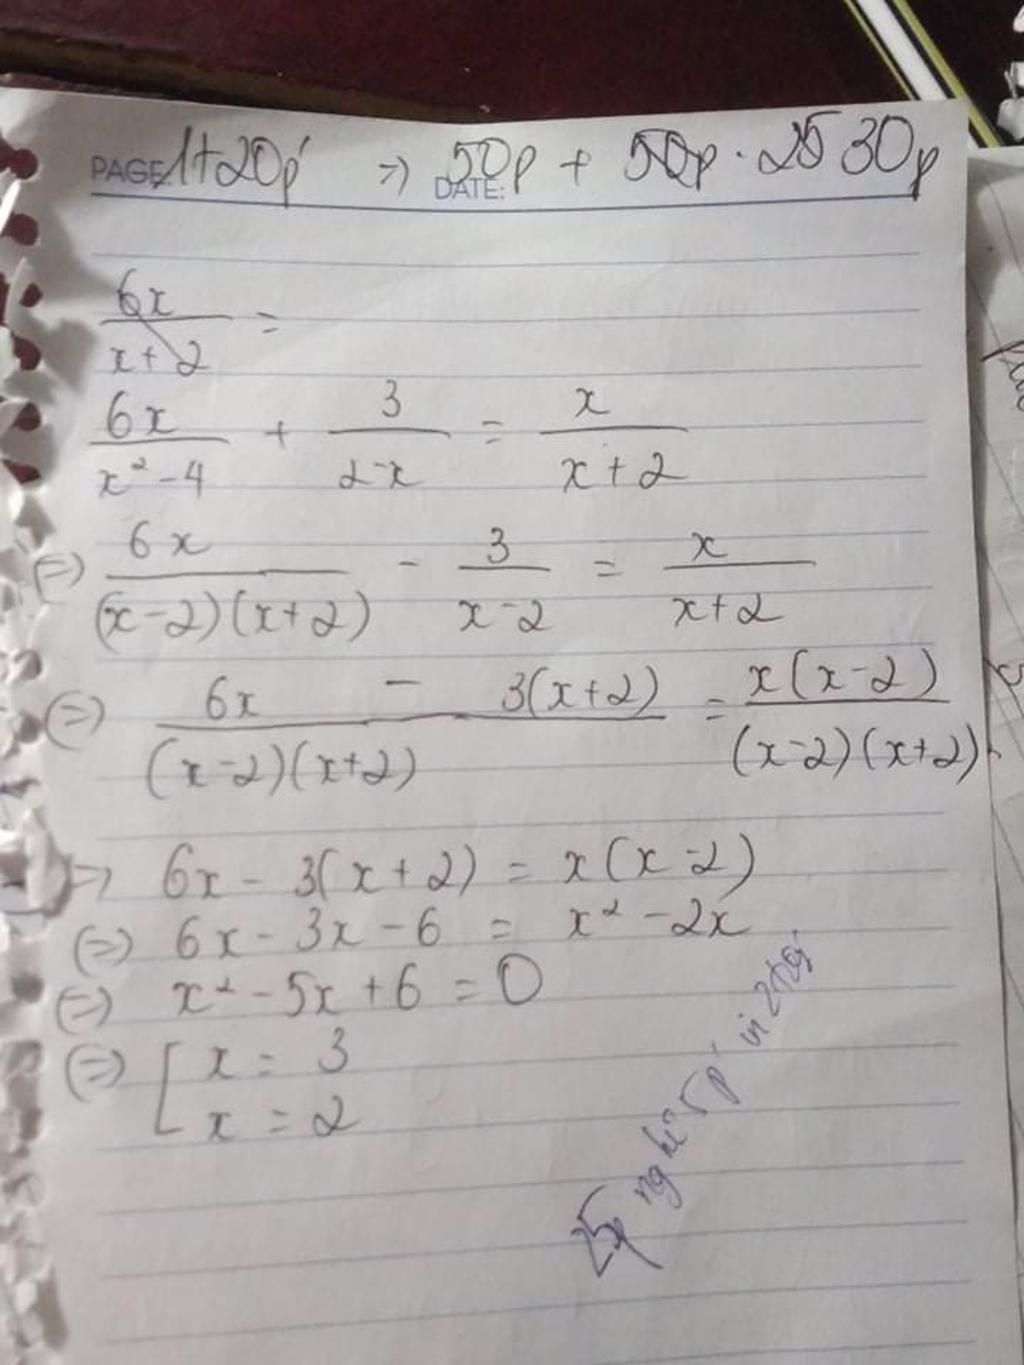 PAGE: 1+20p' => 50p + 50p . 25 30p
DATE:
6x / x+2 =
6x / x² - 4 + 3 / 2-x = x / x+2
(=) 6x / (x-2)(x+2) - 3 / x-2 = x / x+2
(=) 6x - 3(x+2) / (x-2)(x+2) = x(x-2) / (x-2)(x+2)
=> 6x - 3(x+2) = x(x-2)
(=) 6x - 3x - 6 = x² - 2x
(=) x² - 5x + 6 = 0
(=) [ x = 3
x = 2
25p nghỉ 5p' in